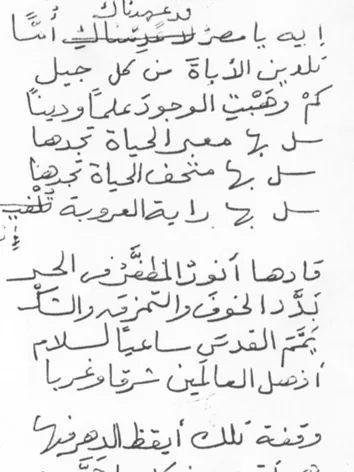 قد عهدناك
إيه يا مصر لا عدمناك أمًّا
تلدين الأباةَ من كل جيل
كمْ وَهَبْتِ الوجودَ علمًا ودينًا
سل بها معبر الحياة تجدها
سل بها متحف الحياة تجدها
سل بها راية العروبة تُلْفِي
قادها أنورُ المظفَّرُ في الحر
بَدَّد الخوفَ والتمزقَ والشك
يَمَّمَ القدسَ ساعيًا لسلام
أذهل العالمين شرقا وغربا
وقفة تلك أيقظ الدهر فيها